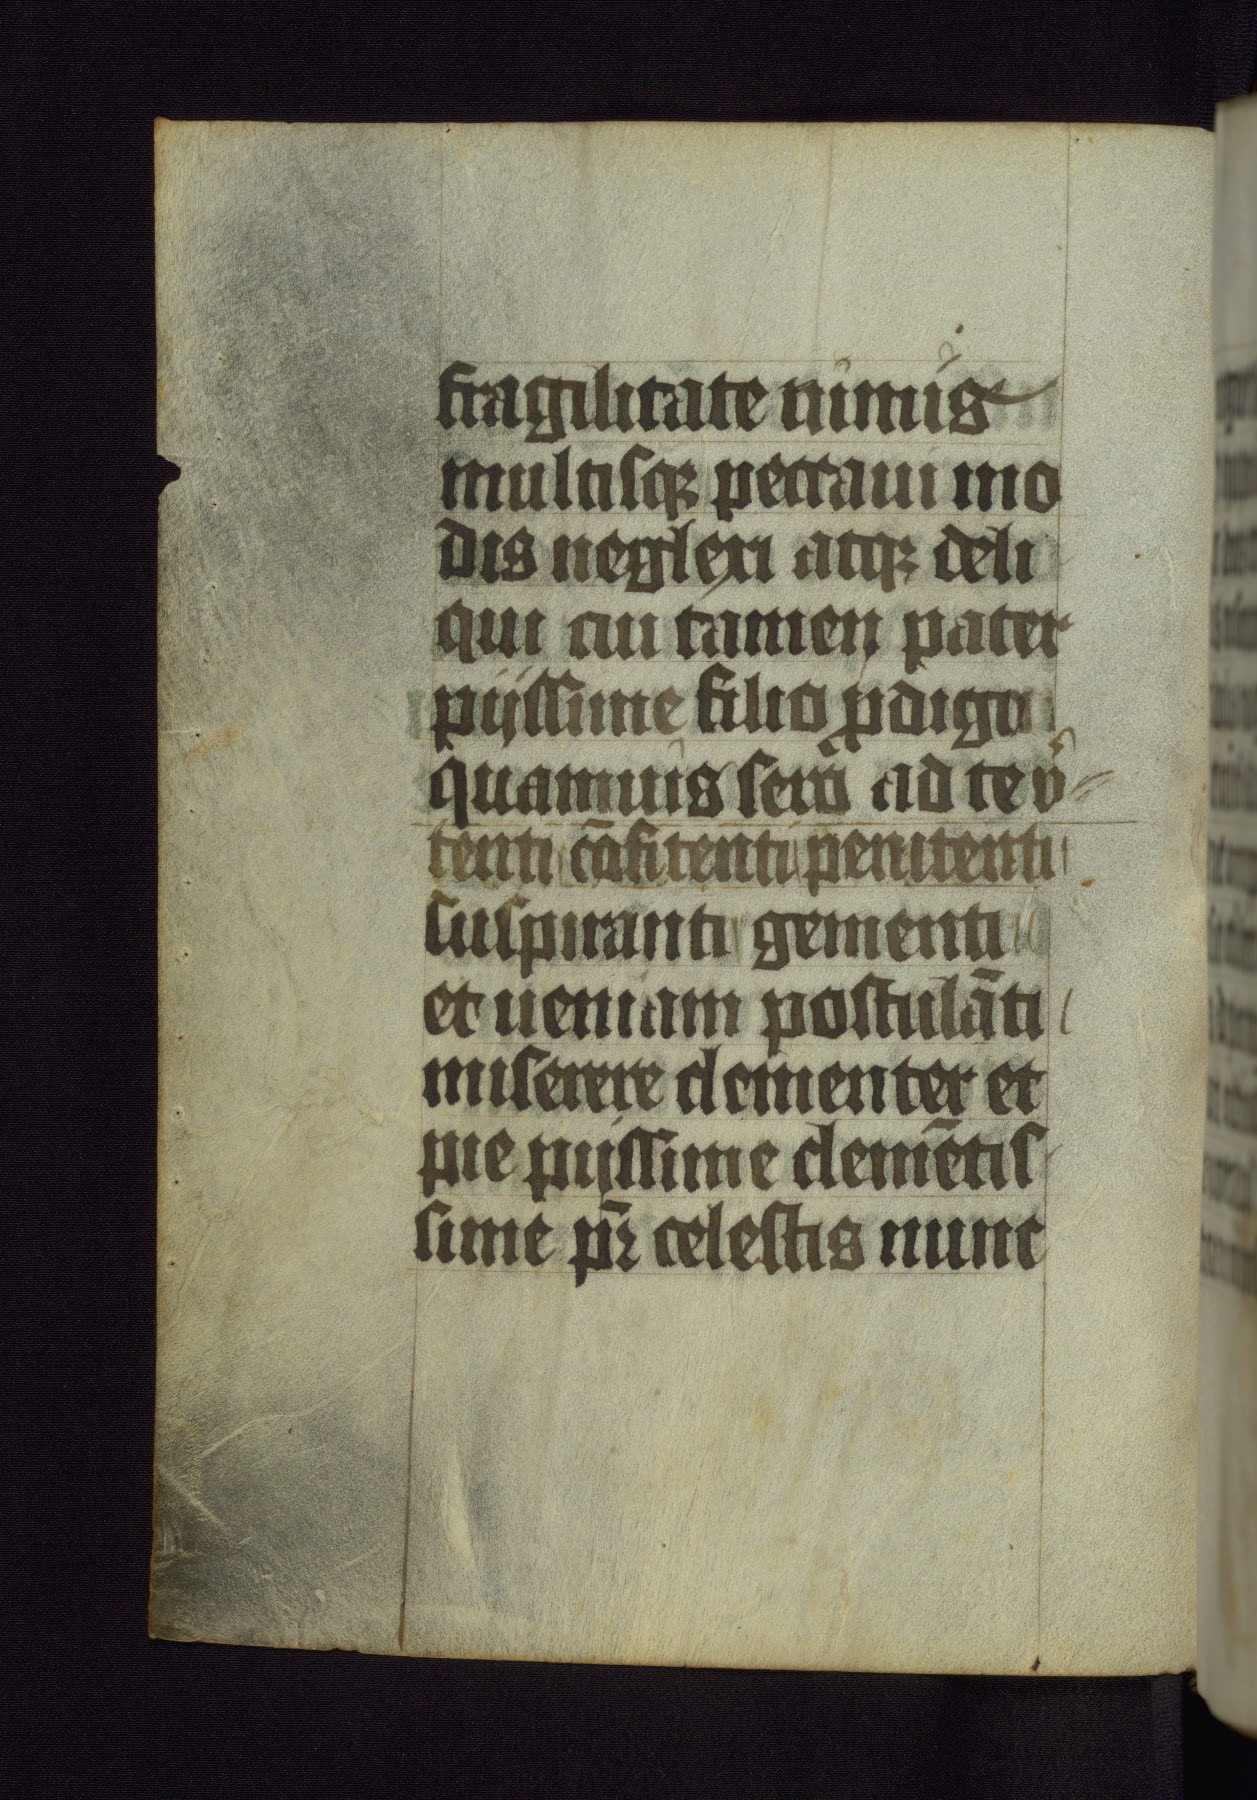 fragilitate nimis
multisqꝫ peccaui mo
dis neglexi atqꝫ deli
qui cui tamen pater
pijssime filio ꝓdigo
quamuis sero ad te ẜ
tenti cōfitenti penitenti
suspiranti gementi
et ueniam postulāti
miserere clementer et
pie pijssime clemētis
sime pr̄ celestis nunc